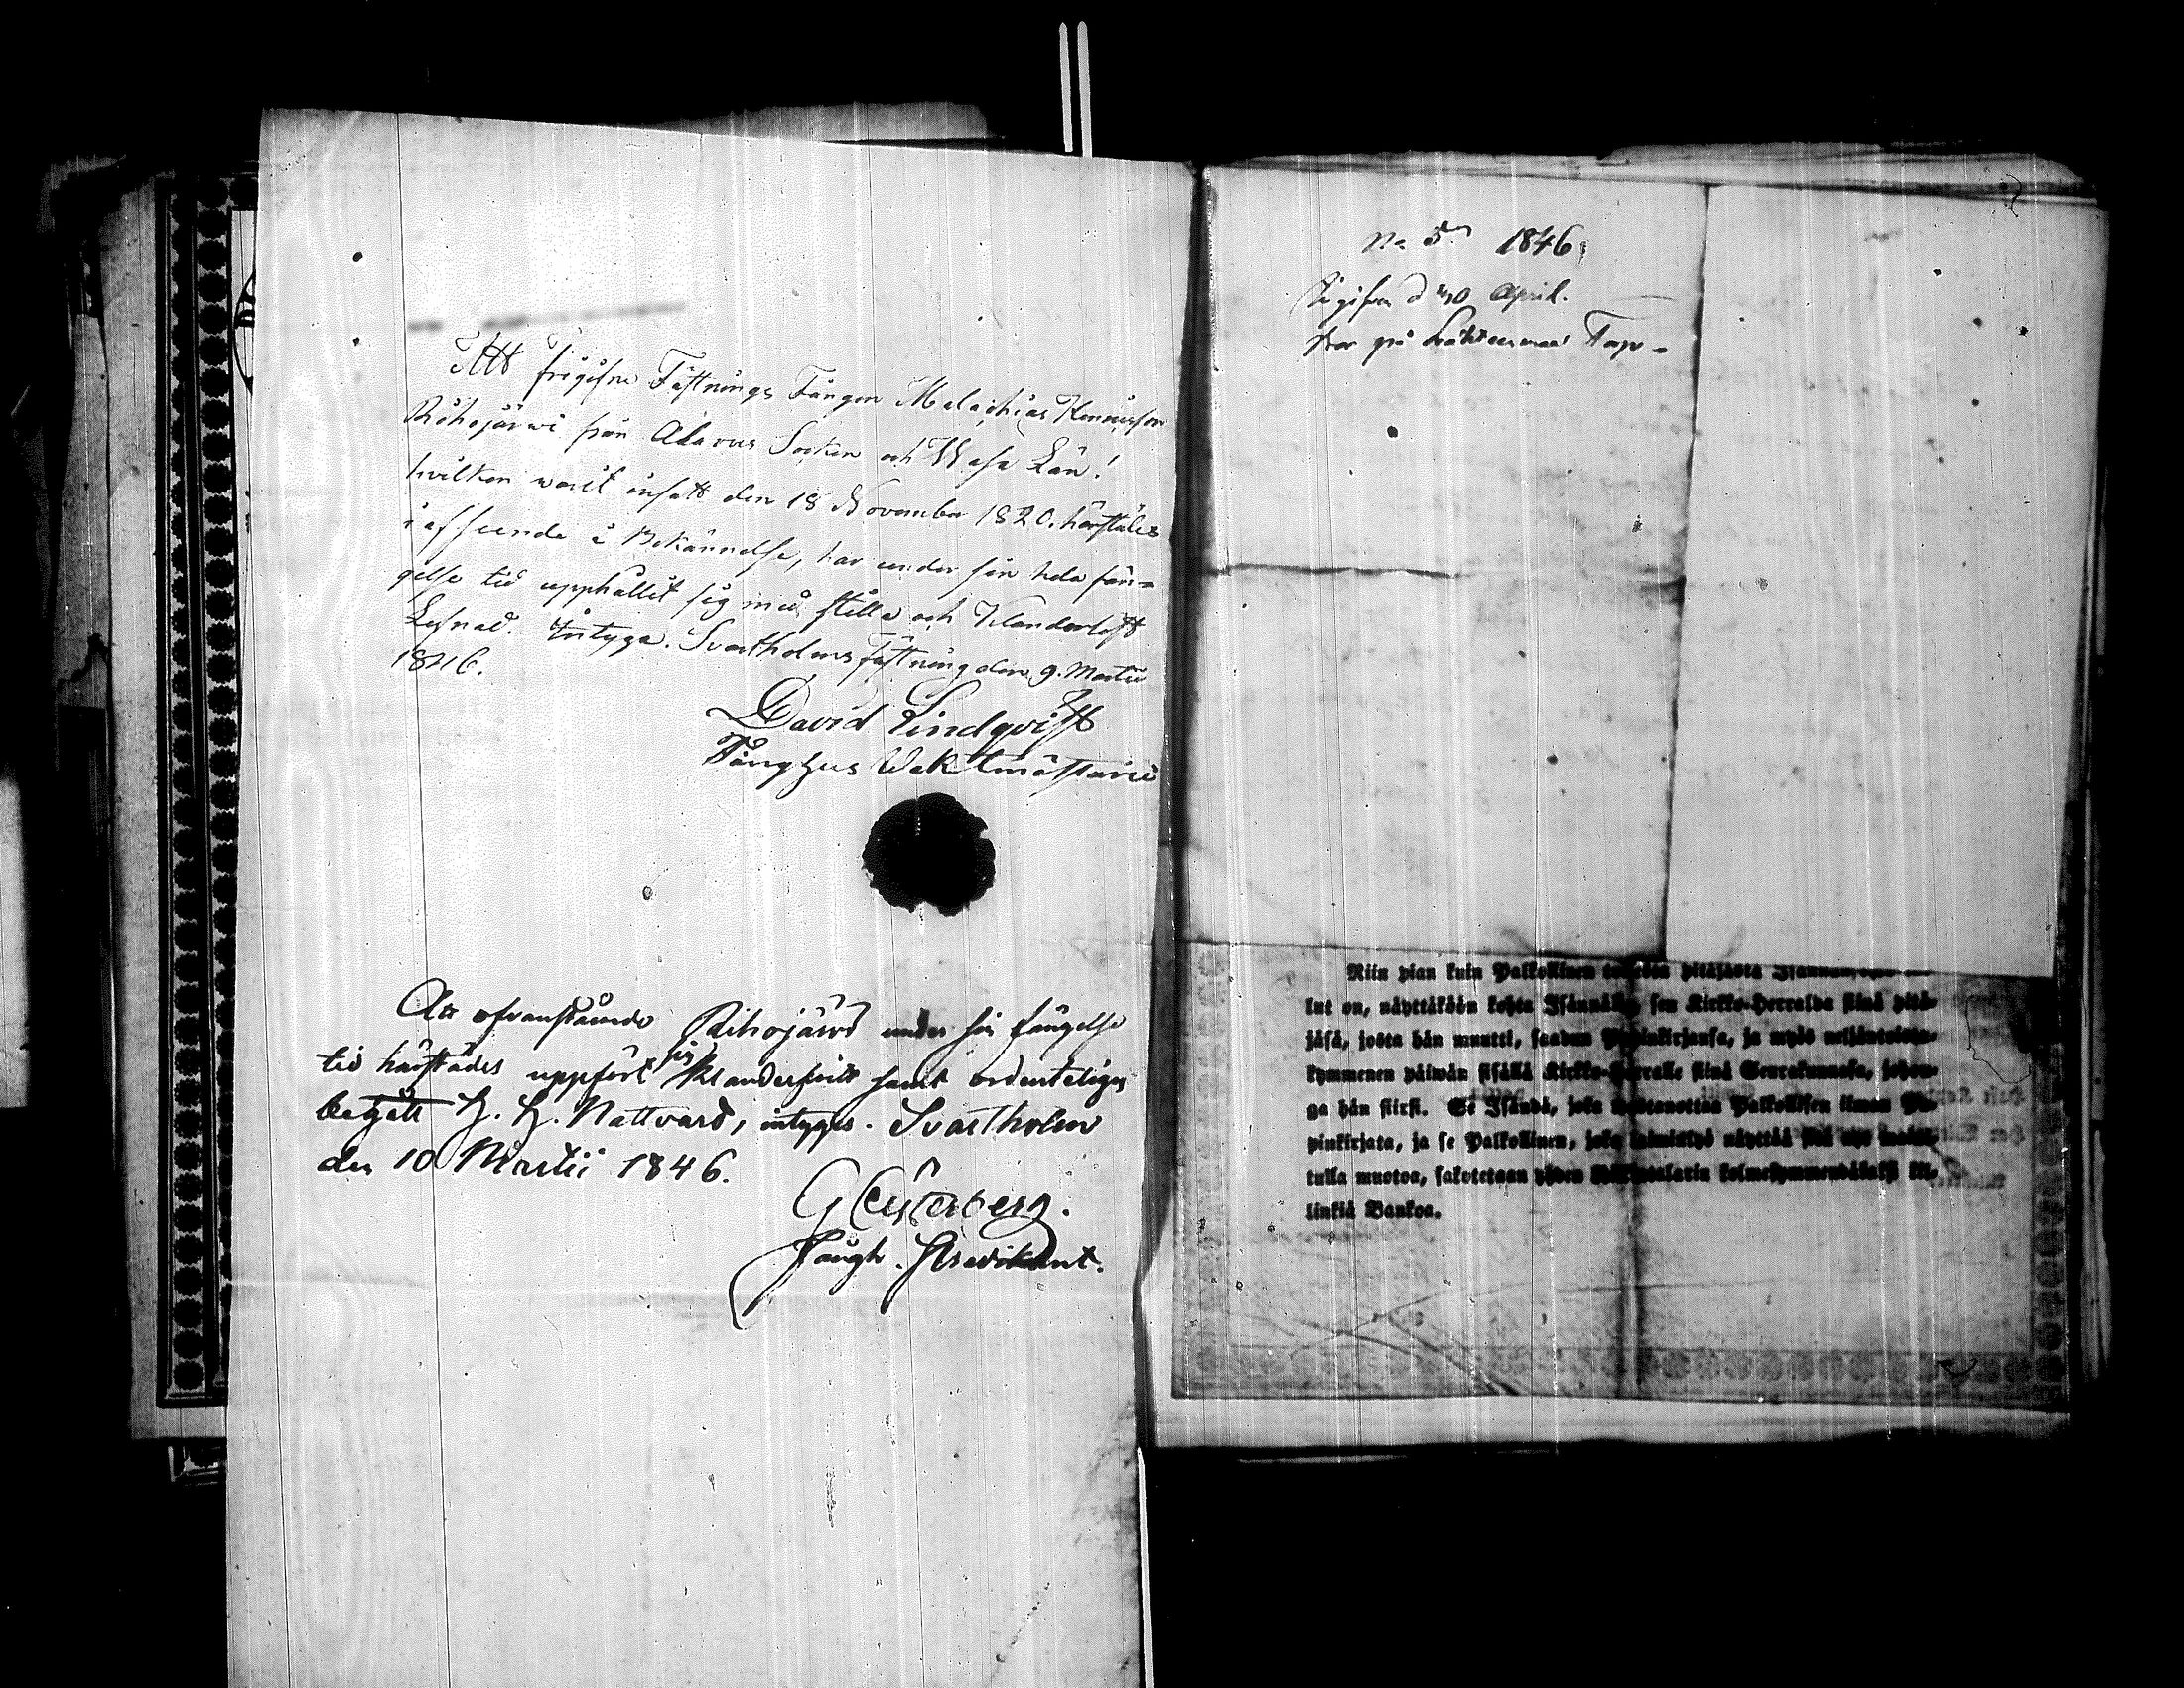 Att frigifne Fästnings Fången Malachias Henricsson
Rihojärwi från Alavus Socken och Wasa Län!
hvilken warit insatt den 18 November 1820. härstädes
i afseende å Bekännelse, har under sin hela fän=
gelse tid upphållit sig med stilla och Klanderlöst
Lefnad. Intyga. Svartholms Fästning den 9. Martii
1846.
David Lindqvist
Fånghus Waktmästare
Att ofvanstående Rihojärvi under sin fängelse
tid härstädes uppfört sig klanderfritt samt ordenteligen
begått H. H. Nattvard, intygas. Svartholm
den 10 Martii 1846.
G Cesterberg.
Fångh. Predikant.
No 5. 1846.
April.
på
Niin pian kuin Palkollinen toisesta pitäjästä
lut on, näyttäköön kohta Isännälle, sen Kirkko-Herralda siinä pitä-
jäsä, josta hän muutti, saadun Papinkirjansa, ja myös neljäntoista-
kymmenen päiwän sisällä Kirkko-Herralle siinä Seurakunnasa, johon-
ga hän siirsi. Se Isändä, joka wastanottaa Palkollisen ilman Pa-
pinkirjata, ja se Palkollinen, joka laiminlyö näyttää sitä nyt
tulla muotoa, sakotetaan yhden kolmekymmendäkaksi kil-
linkiä Bankoa.